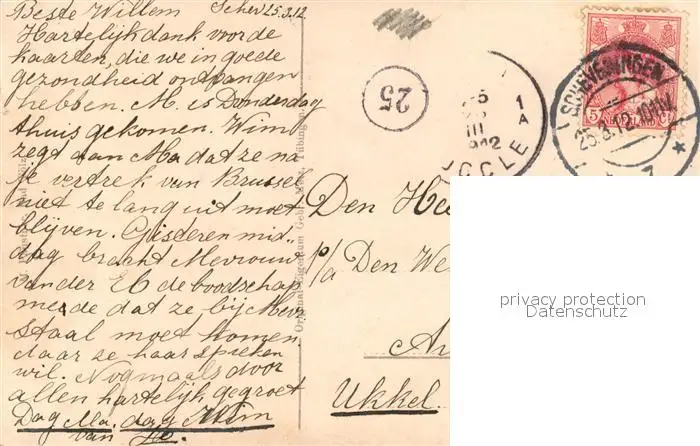 Beste Willem Schev 25.3.12
Hartelijk dank voor de
kaarten, die we in goede
gezondheid ontvangen
hebben. M. is Donderdag
thuis gekomen. Wim
zegt aan Ma dat ze na
vertrek van Brussel
niet te lang uit moet
blijven. Gisteren mid-
dag bracht Mevrouw
van der E de boodschap
mede dat ze bij Mevr
Staal moet komen
daar ze haar spreken
wil. Nogmaals door
allen hartelijk gegroet
Dag Ma, dag Wim
van
25
1
A
III
1912
UCCLE
SCHEVENINGEN
25.3.12.
5
NEDERLAND
Original-Eigentum Gebr. Metz, Tübingen
Den Hee
p/a Den We
Ukkel.
privacy protection
Datenschutz